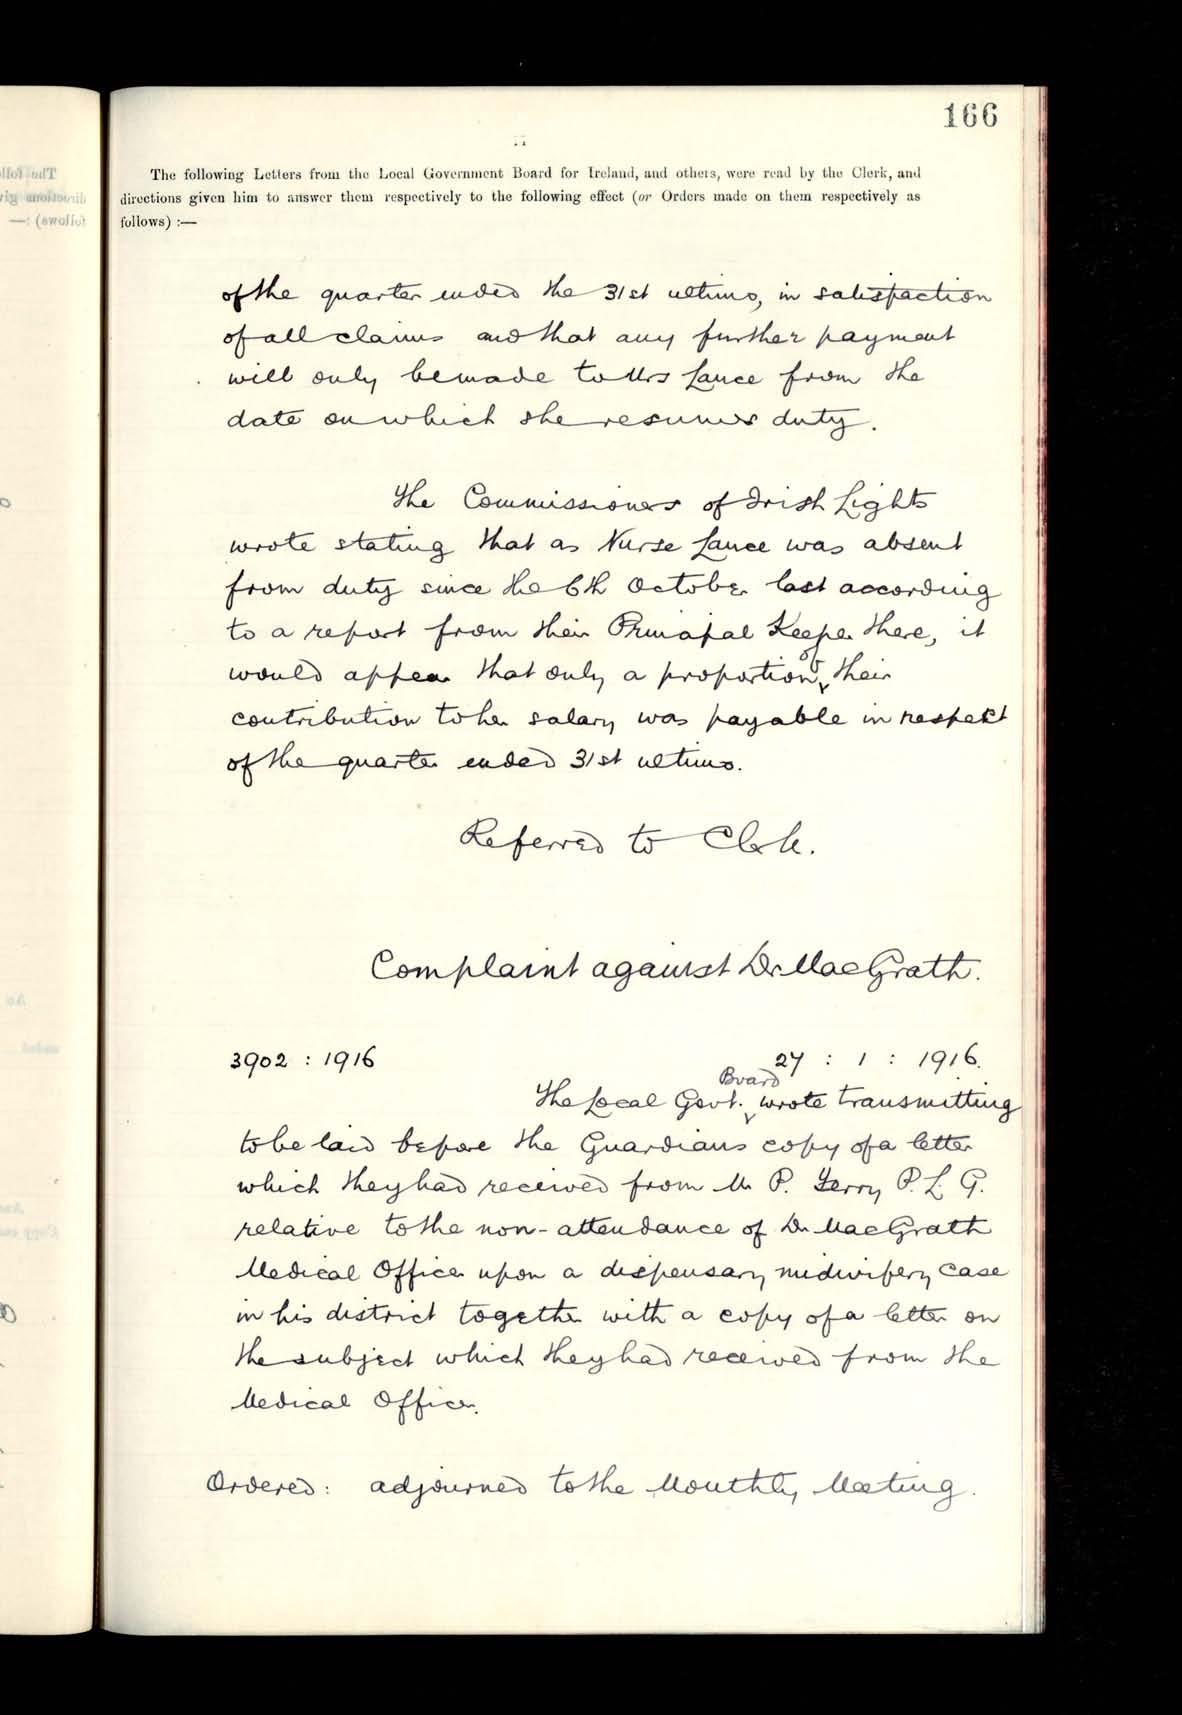 166
The following Letters from the Local Government Board for Ireland, and others, were read by the Clerk, and
directions given him to answer them respectively to the following effect (or Orders made on them respectively as
follows) :—
of the quarter ended the 31st ultimo, in satisfaction
of all claims and that any further payment
will only be made to Mrs Lance from the
date on which she resumes duty.
The Commissioners of Irish Lights
wrote stating that as Nurse Lance was absent
from duty since the 6th October last according
to a report from their Principal Keeper there, it
would appear that only a proportion of their
contribution to her salary was payable in respect
of the quarter ended 31st ultimo.
Referred to Clerk.
Complaint against Dr MacGrath.
3902 : 1916 27 : 1 : 1916.
The Local Govt. Board wrote transmitting
to be laid before the Guardians copy of a letter
which they had received from Mr P. Gerry P. L. G.
relative to the non-attendance of Dr MacGrath
Medical Officer upon a dispensary midwifery case
in his district together with a copy of a letter on
the subject which they had received from the
Medical Officer.
Ordered: adjourned to the Monthly Meeting.